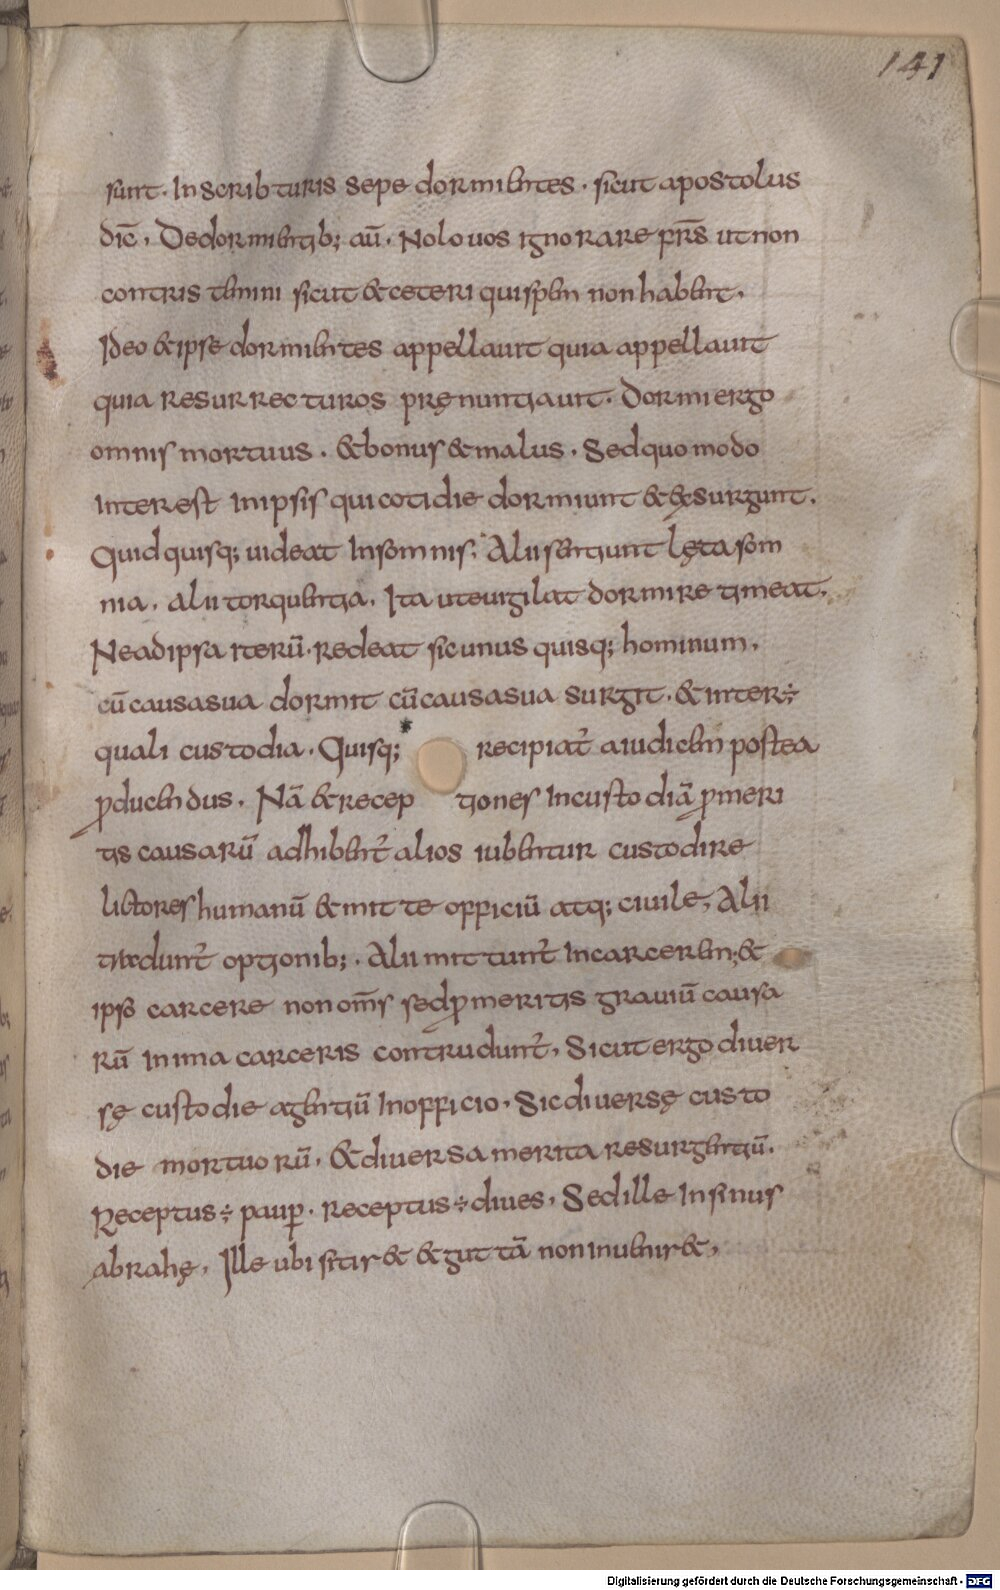 141
sunt. In scribturis sepe dormientes. sicut apostolus
dic̄. De dormientib; aū. Nolo uos ignorare fr̄s ut non
contristemini sicut & ceteri qui spem non habent.
Ideo & ipse dormientes appellauit quia appellauit
quia resurrecturos prę nuntiauit. Dormi ergo
omnis mortuus. & bonus & malus. Sed quo modo
interest in ipsis qui cotidie dormiunt & exsurgunt.
Quid quisq; uideat in somnis. Alii sentiunt lęta som
nia. alii torquentia. Ita ut euigilat dormire timeat.
Ne ad ipsa iterū. redeat sic unus quisq; hominum.
cū causa sua dormit cū causa sua surgit. & inter ÷
quali custodia. Quisq; recipiat̄ a iudicem postea
ꝓducendus. Nā & recep tiones in custodiā ꝓ meri
tis causarū adhibent̄ alios iubentur custodire
lictores humanū & mitte officiū atq; ciuile. Alii
dunt̄ optionib;. Alii mittunt̄ in carcerem; &
ipso carcere non om̄s sed ꝓ meritis grauiū causa
rū in ima carceris contrudunt̄. Sicut ergo diuer
sę custodie agentiū in officio. Sic diuersę custo
die mortuorū. & diuersa merita resurgentiū.
Receptus ÷ paup̱. receptus ÷ diues. Sed ille in sinus
abrahę. Ille ubi sitir& & guttā non inuenir&.
Digitalisierung gefördert durch die Deutsche Forschungsgemeinschaft - DFG